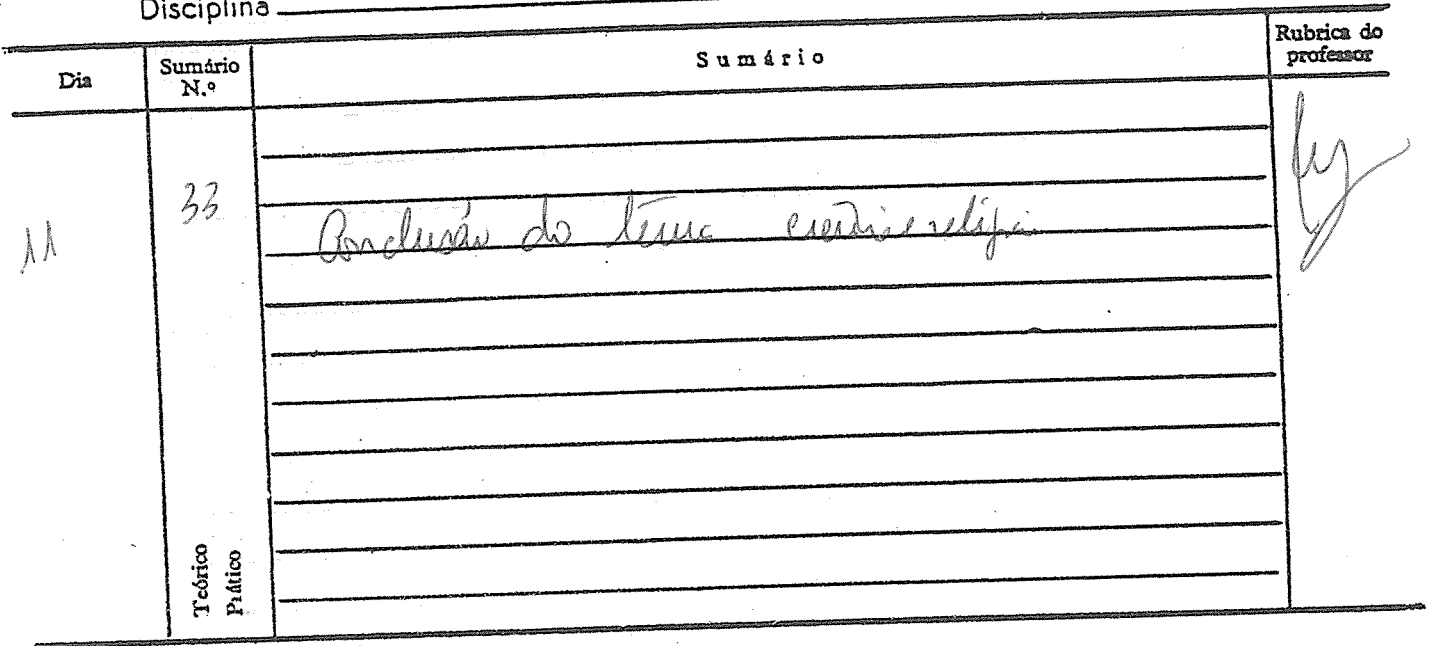 Disciplina
Dia
Sumário N.º
Sumário
Rubrica do professor
11
33
Conclusão do tema
Teórico
Prático